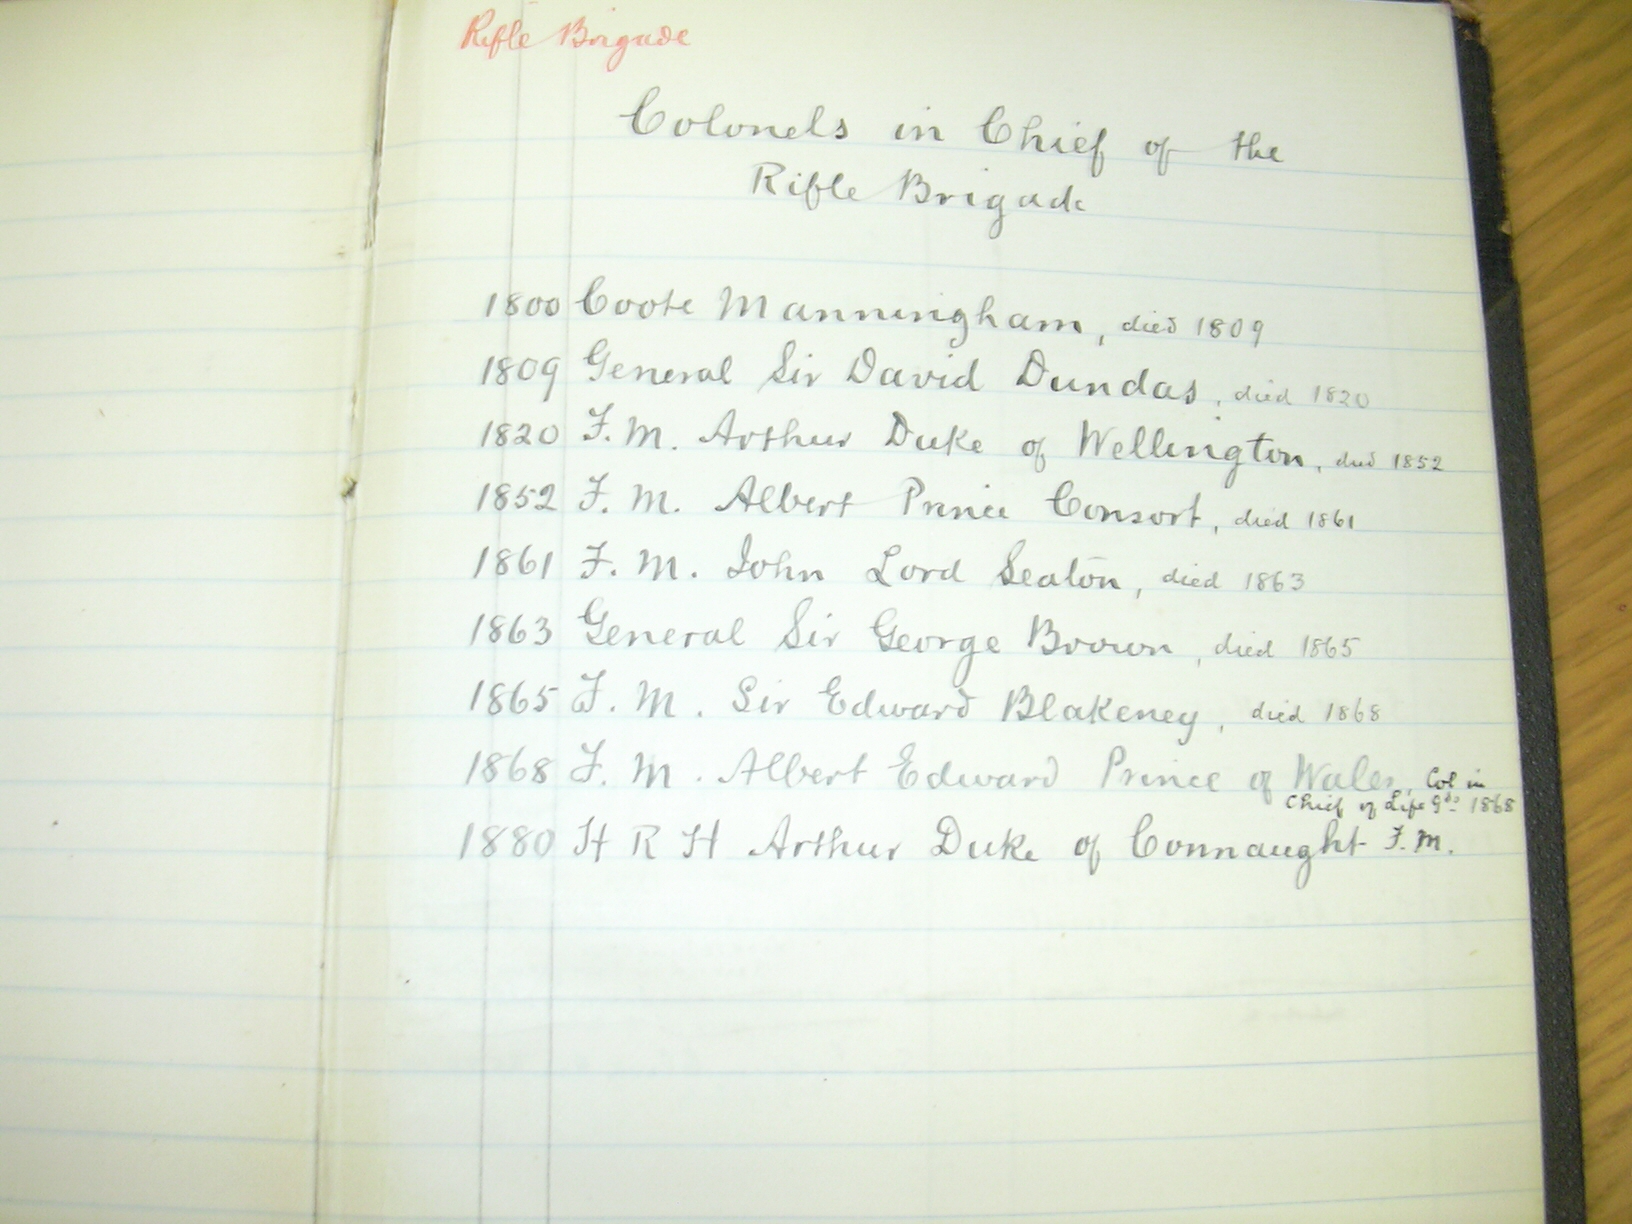 Rifle Brigade
Colonels in Chief of the
Rifle Brigade
1800 Coote Manningham, died 1809
1809 General Sir David Dundas, died 1820
1820 F. M. Arthur Duke of Wellington, died 1852
1852 F. M. Albert Prince Consort, died 1861
1861 F. M. John Lord Seaton, died 1863
1863 General Sir George Brown, died 1865
1865 F. M. Sir Edward Blakeney, died 1868
1868 F. M. Albert Edward Prince of Wales, Col in
Chief of Life Gds 1868
1880 H R H Arthur Duke of Connaught F. M.